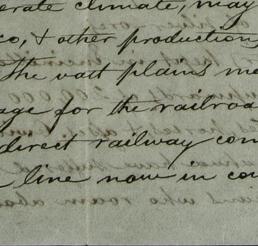 erate climate, may
co, & other production
the vast plains me
age for the railroa
direct railway con
line now in co